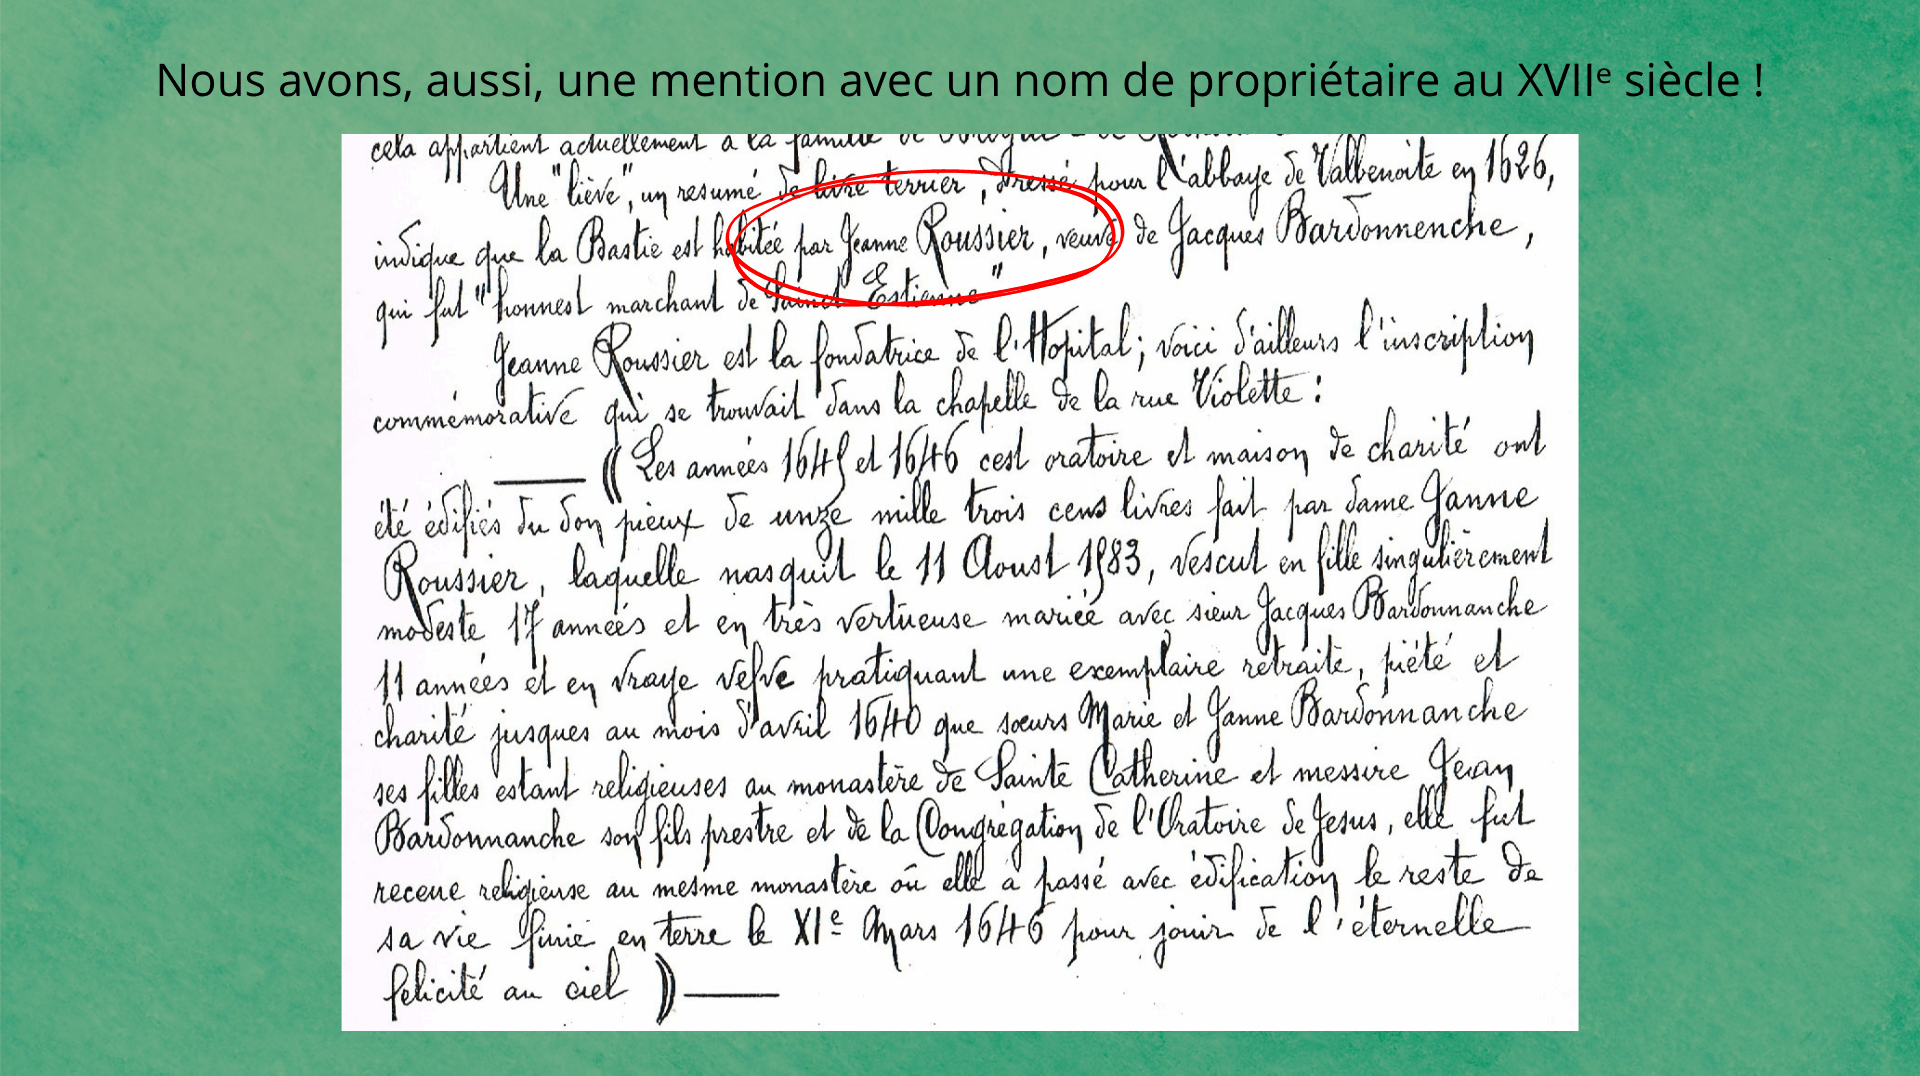 Nous avons, aussi, une mention avec un nom de propriétaire au XVIIe siècle !
cela appartient actuellement a la famille de
Une "liève", un resumé de livre terrier, dressé pour l'abbaye de Valbenoite en 1626,
indique que la Bastie est habitée par Jeanne Roussier, veuve de Jacques Bardonnenche,
qui fut "honnest marchant de Sainct Estienne"
Jeanne Roussier est la fondatrice de l'Hopital; voici d'ailleurs l'inscription
commémorative qui se trouvait dans la chapelle de la rue Violette :
(( Les années 1645 et 1646 cest oratoire et maison de charité ont
été édifiés du don pieux de unze mille trois cens livres fait par dame Janne
Roussier, laquelle nasquit le 11 Aoust 1583, vescut en fille singulièrement
modeste 17 années et en très vertueuse mariée avec sieur Jacques Bardonnanche
11 années et en vraye vefve pratiquant une exemplaire retraite, piété et
charité jusques au mois d'avril 1640 que sœurs Marie et Janne Bardonnanche
ses filles estant religieuses au monastère de Sainte Catherine et messire Jean
Bardonnanche son fils prestre et de la Congrégation de l'Oratoire de Jesus, elle fut
receue religieuse au mesme monastère où elle a passé avec édification le reste de
sa vie finie en terre le XIe Mars 1646 pour jouir de l'éternelle
felicité au ciel ))